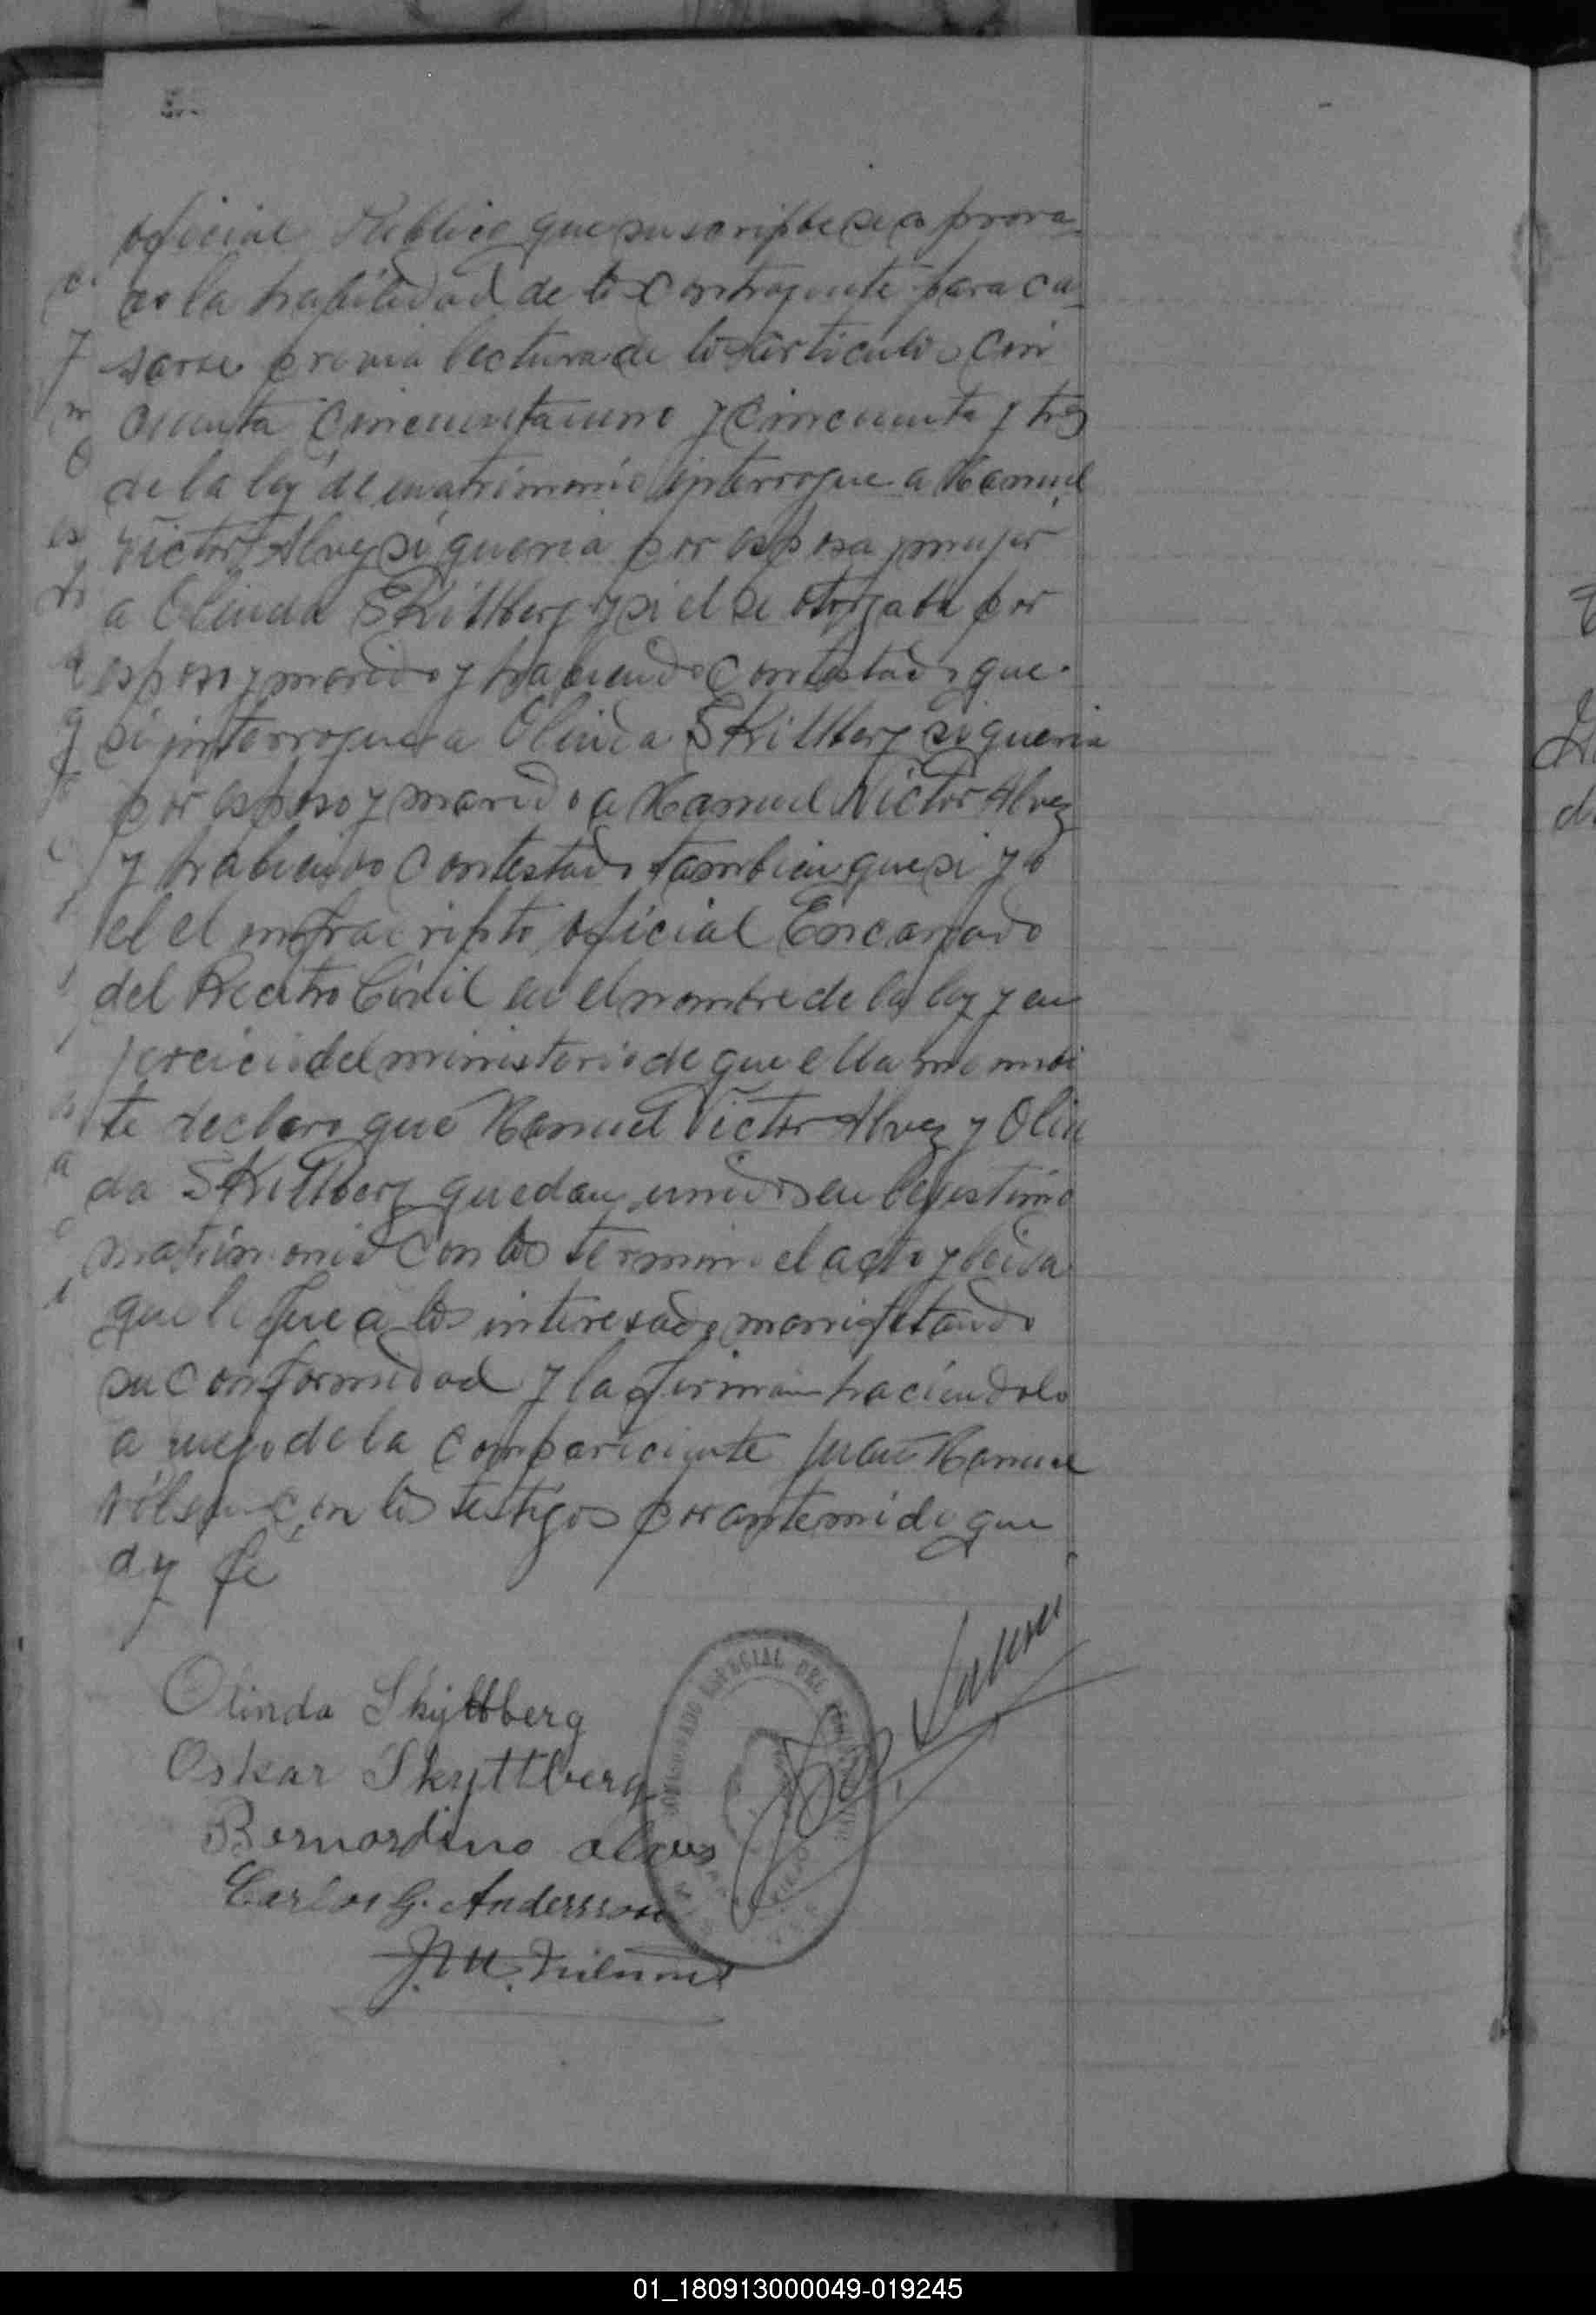 oficial Publico que suscribe se a prova
do la habilidad de los Contrajente para ca
sarse previa lectura de los Articulos cin
cuenta cincuentaiuno y cincuenta y tres
de la ley de matrimonio interrogue a Manuel
Victor Alvez si queria por esposa y mujer
a Olinda Skillberg y si el se otorgaba por
esposo y marido y habiendo contestado que
si interrogue a Olinda Skillberg si queria
por esposo y marido a Manuel Victor Alvez
y habiendo contestado tambien que si yo
el el infrascripto oficial Encargado
del Recitro Civil en el nombre de la ley y en
jercicio del ministerio de que ella me
te declaro que Manuel Victor Alvez y Olin
da Skillberg quedan unidos en legistimo
matrimonio Con los termino el acto y leida
que le fue a los interesado manifestando
su conformidad y la firman haciendolo
a ruego de la compareciente Juan Manuel
con los testigos por ante mi de que
doy fe
Olinda Skyttberg
Oskar Skyttberg
Bernardino alves
Carlos G. Andersson
J. M.